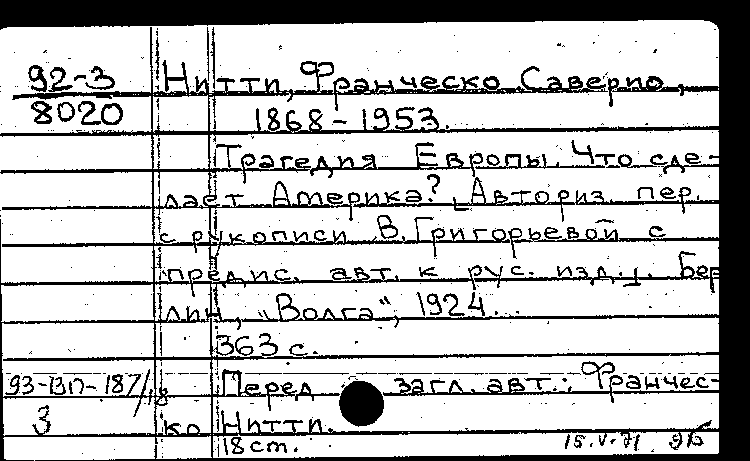 92-3 Нитти, Франческо Саверио,
8020 1868-1953.
Трагедия Европы. Что сде-
лает Америка? [Авториз. пер.
с рукописи В. Григорьевой с
предис. авт. к рус. изд.]. Бер
лин, "Волга", 1924...
363 с.
93-ВП-187/18 Перед загл. авт.: Франчес-
3 ко Нитти.
18 cm. 15.V.71